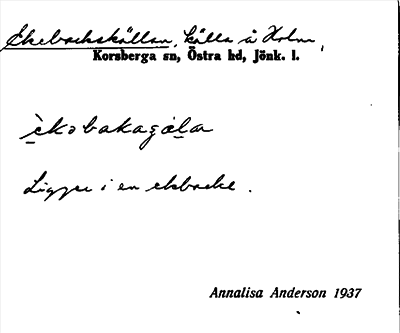 Ekebackskällan, källa å Holm,
Korsberga sn, Östra hd, Jönk. l.
èkobakaɕälar
Ligger i en ekbacke.
Annalisa Anderson 1937